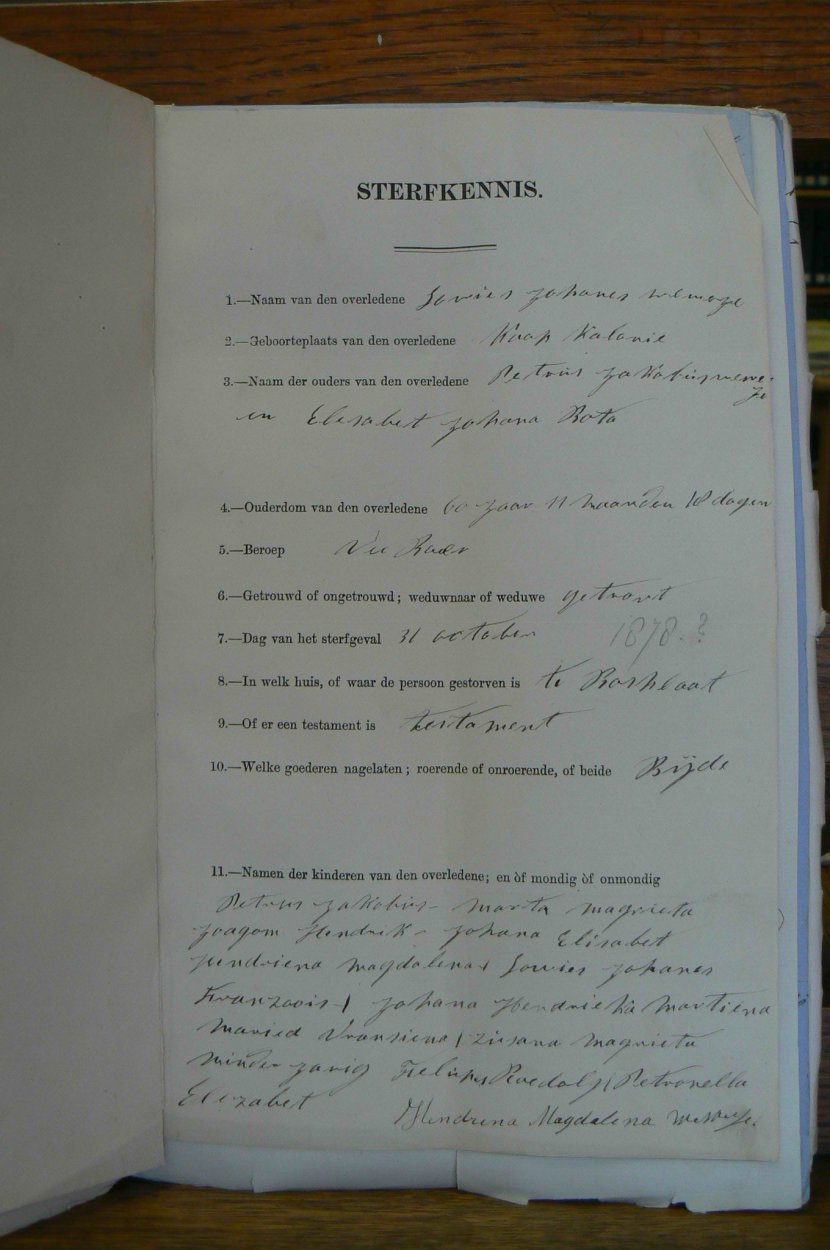 STERFKENNIS.
1.—Naam van den overledene Lowies Johanes
2.—Geboorteplaats van den overledene Kaap Kalonie
3.—Naam der ouders van den overledene Petrus Jakobus
en Elisabet Johana Bota
4.—Ouderdom van den overledene 60 jaar 11 maanden 18 dagen
5.—Beroep Vee Boer
6.—Getrouwd of ongetrouwd; weduwnaar of weduwe getrout
7.—Dag van het sterfgeval 31 october 1878.?
8.—In welk huis, of waar de persoon gestorven is te
9.—Of er een testament is testament
10.—Welke goederen nagelaten; roerende of onroerende, of beide Bijde
11.—Namen der kinderen van den overledene; en òf mondig òf onmondig
Petrus Jakobus - marta magrieta
Joagom Hendrik - Johana Elisabet
Hendriena magdalena / Lowies Johanes
Franzoois / Johana Hendrieka martiena
maried Vransiena / zusana magrieta
minder jarig Roedolf / Petronella
Elezabet Hendrina Magdalena